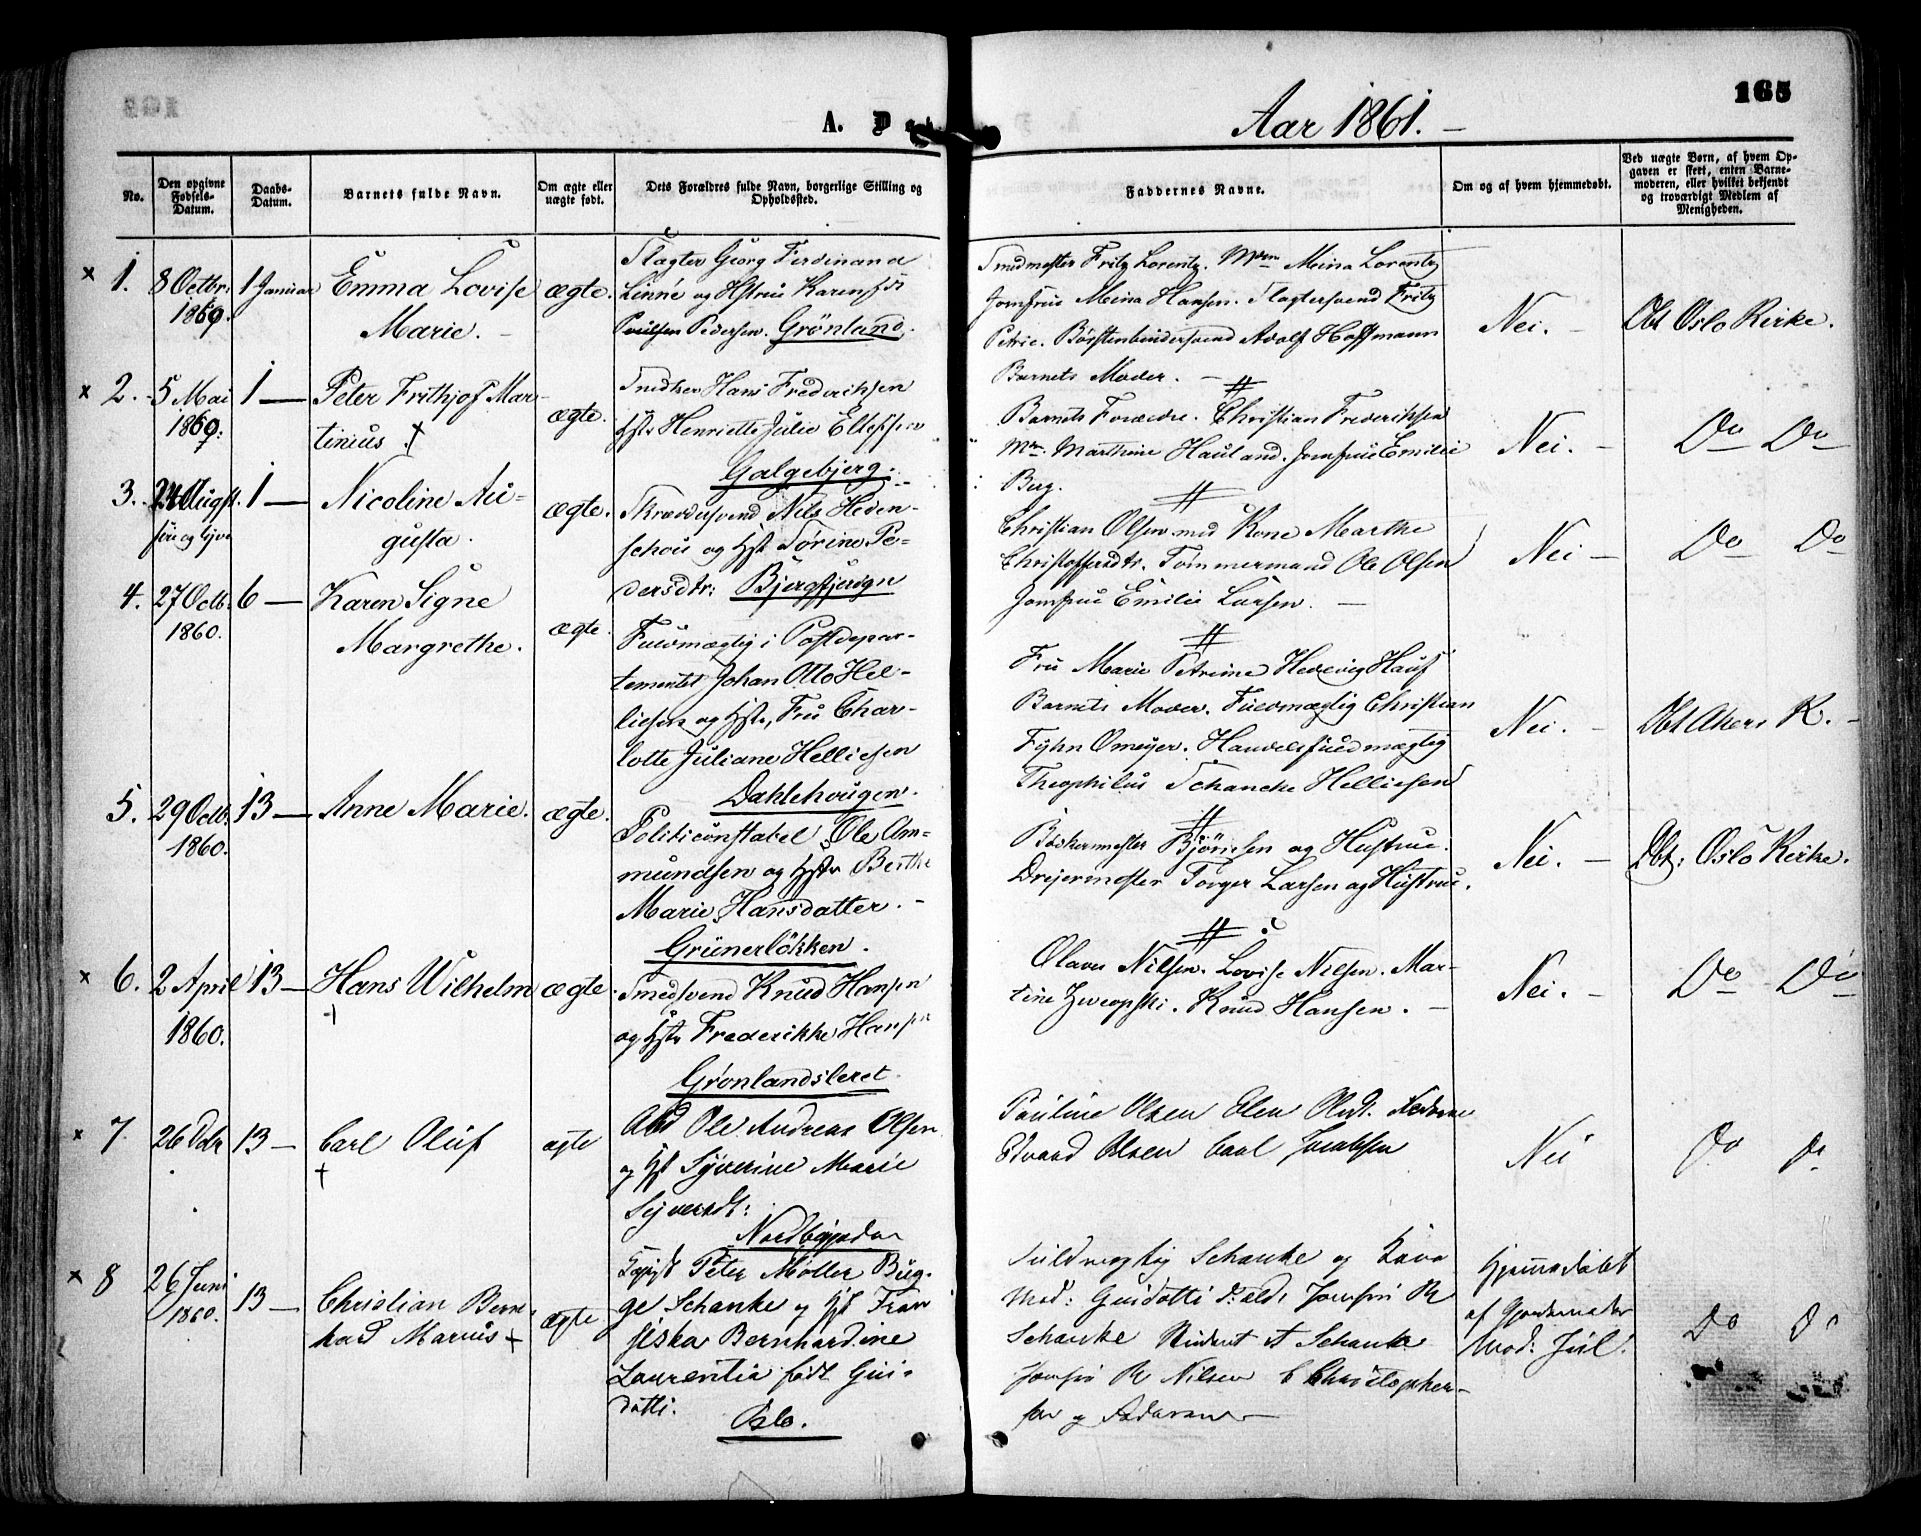 A. D
Aar 1861.
165
No.
Den opgivne Fødsels-Datum.
Daabs-Datum.
Barnets fulde Navn.
Om ægte eller uægte født.
Dets Forældres fulde Navn, borgerlige Stilling og Opholdssted.
Faddernes Navne.
Om og af hvem hjemmedøbt.
Ved uægte Børn, af hvem Opgaven er skeet, enten Barnemoderen, eller hvilket bekjendt og troværdigt Medlem af Menigheden.
1.
8 Octbr.
1860.
1 Januar
Emma Lovise
Marie.
ægte.
Slagter Georg Ferdinand
Linné og Hstrue Karen
Pedersen. Grönland.
Smedmester Fritz Lorentz. Mdm Meina Lorentz
Jomfrue Meina Hansen. Slagtersvend Fritz
Petrie. Börstenbindersvend Adolf Hoffmann
Barnets Moder.
Nei.
Dbt Oslo Kirke.
2.
5 Mai
1860.
1
Peter Frithjof Mar-
tinius
ægte.
Hans Frederiksen
Hstr Henriette Julie
Galgebjerg.
Barnets Forældre. Christian Frederiksen
Mdm. Marthine Hauland. Jomfrue Emilie
Berg.
Nei.
Do Do
3.
24 August.
1
Nicoline Au-
gusta.
ægte.
Skræddersvend Nils Heden-
schou og Hst Torine Pe-
dersdtr: Bjergfjerdgn
Christian Olsen med Kone Marthe
Christoffersdtr. Tømmermand Ole Olsen
Jomfrue Emilie Larsen.
Nei
Do Do
4.
27 Octb.
1860.
6
Karen Signe
Margrethe.
ægte.
Fuldmægtig i Postdepar-
tementet Johan Otto Hel-
liesen og Hstr, Fru Char-
lotte Juliane Helliesen
Dahlehougen.
Fru Marie Petrine Hedevig Hauf
Barnets Moder. Fuldmægtig Christian
Fyhn Omeyer. Handelsfuldmægtig
Theophilus Schancke Helliesen
Nei.
Dbt Akers K.
5.
29 Octb.
1860.
13
Anne Marie.
ægte.
Politiconstabel Ole Am-
mundsen og Hstr Berthe
Marie Hansdatter.
Grünerlökken.
Bödkermester Björnsen og Hustrue.
Dreiermester Torger Larsen og Hustrue.
Nei.
Dbt: Oslo Kirke.
6.
2 April
1860.
13
Hans Wilhelm
ægte.
Smedsvend Knud Hansen
og Hstr Frederikke Hansen
Grønlandsleret.
Olaves Nilsen. Lovise Nilsen. Mar-
tine. Knud Hansen.
Nei.
Do Do
7
26 Octr
13
Carl Oluf
ægte
Abd Ole Andreas Olsen
og Hst Syverine Marie
Syversdt:
Nordbygaden
Pauline Olsen Elen Olsdt.
Edvard Olsen Carl Jacobsen
Nei
Do Do
8
26 Juni
1860.
13
Christian Bern-
had Marius
ægte
Peter Møller Büg-
ge Schanke og Hst Fran
siska Bernhardine
Laurentia født Gui-
dotti.
Oslo.
Fuldmegtig Schanke og Kone
Mad: Guidotti Jomfru R
Schanke Student A Schanke
Jomfru R Nilsen C Christopher-
sen og Faderen
Hjemmedöbt
af Gjordemoder
Mad: Jul.
Do Do